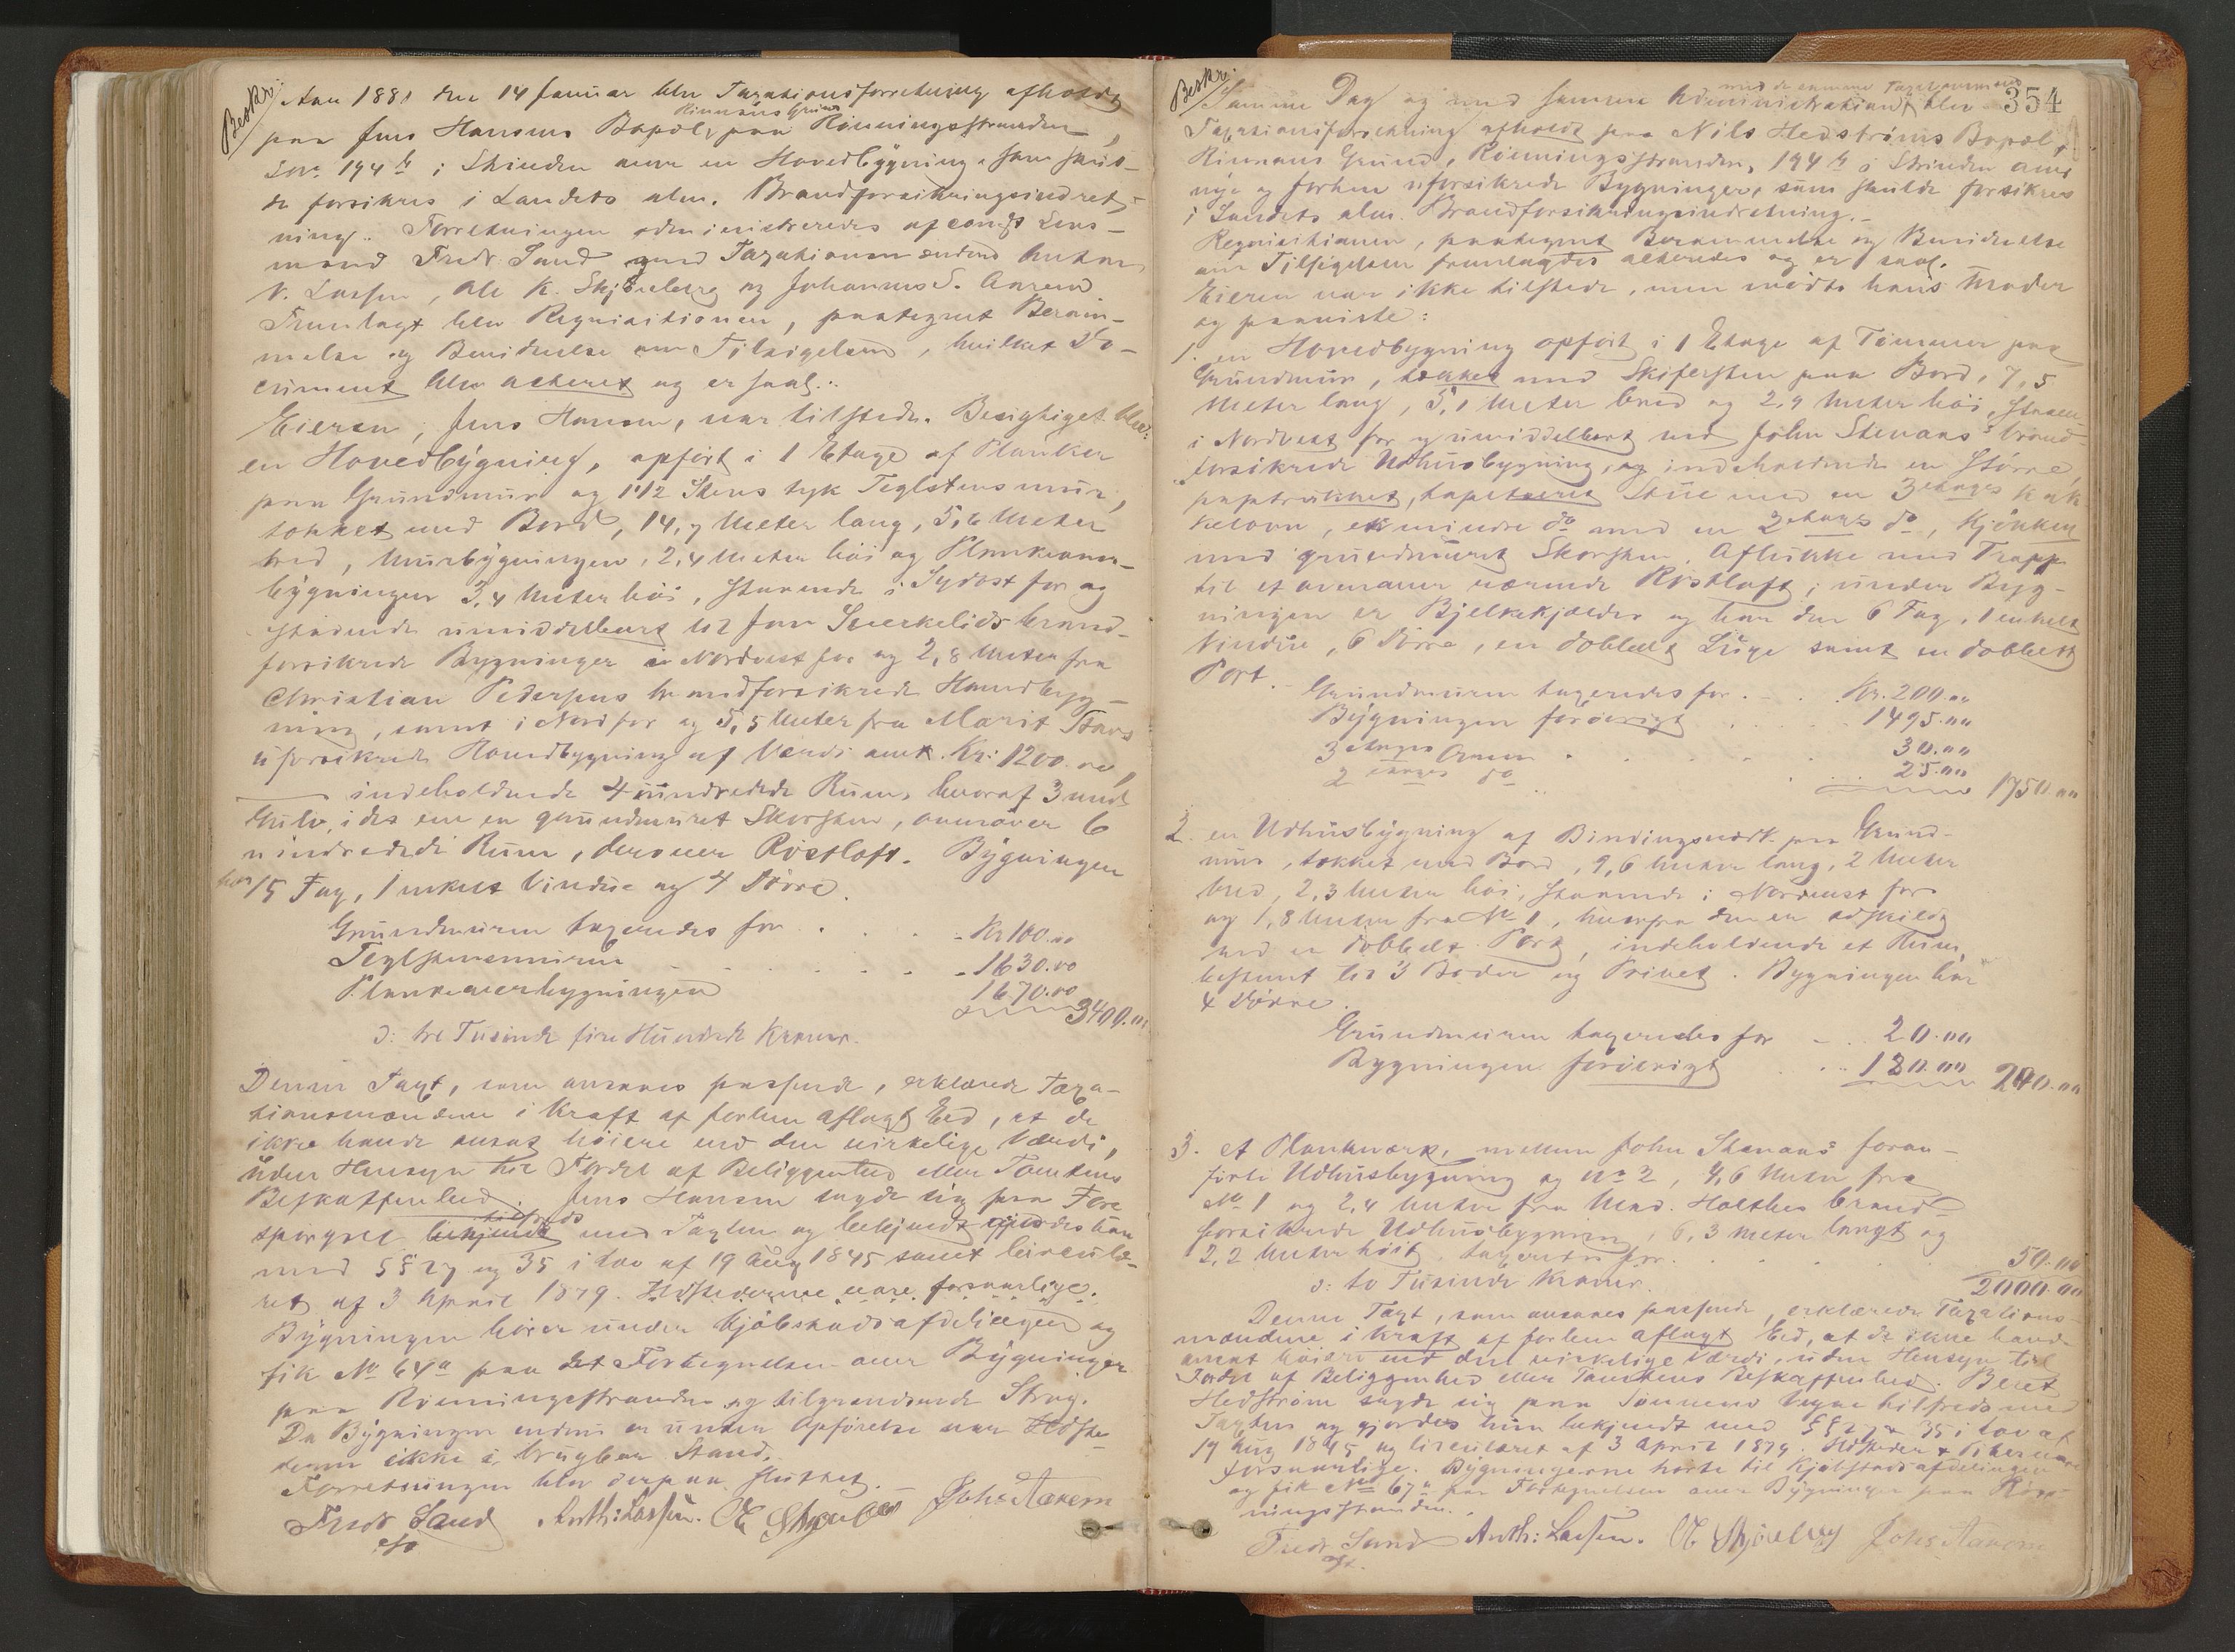 Beskr.
Aar 1881 den 14 Januar blev Taxationsforretning afholdt
Rinnans Grund
paa Jens Hansens Bopæl, paa Rönningsstranden,
Lno. 194 b i Strinden over en Hovedbygning, som skul-
de forsikres i Landets alm. Brandforsikringsindret-
ning. Forretningen administreredes af const. Lens-
mand Fredr. Sand med Taxationsmændene Anton
N. Lassen, Ole K. Skjölberg og Johannes S. Aarem
Fremlagt blev Requisitionen, paategnet Beram-
melse og Bevidnelse om Tilsigelsen, hvilket Do-
cument blev acteret og er saal.:
Eieren, Jens Hansen, var tilstede. Besigtiget blev:
en Hovedbygning, opfört i 1 Etage af Planker
paa Grundmur og 1 1/2 Stens tyk Teglstensmur,
tækket med Bord, 14,7 Meter lang, 5,6 Meter
bred, Murbygningen 2,4 Meter höi og Plankeover-
bygningen 3,4 Meter höi, staaende i Sydost for og
stödende umiddelbart til Jon brand-
forsikrede Bygninger i Nordvest for og 2,8 Meter fra
Christian Pedersens brandforsikrede Hovedbyg-
ning, samt i Nord for og 5,5 Meter fra Marit
uforsikrede Hovedbygning af Værdi omt. Kr. 1200.00
indeholdende 4 uindredede Rum, hvoraf 3 med
Gulv, i det ene en grundmuret Skorsten, ovenover 6
uindredede Rum, derover Röstloft. Bygningen
har 15 Fag, 1 enkelt Vindue og 4 Dörre.
Grundmuren taxeredes for . . . . Kr 100.00
Teglstensmuren . . . . . - 1630.00
Plankeoverbygningen 1670.00
3400.00
ɔ: tre Tusinde fire Hundrede Kroner.
Denne Taxt, som ansaaes passende, erklærede Taxa-
tionsmændene i Kraft af forhen aflagt Eed, at de
ikke havde ansat höiere end den virkelige Værdi,
uden Hensyn til Fordel af Beliggenhed eller Tomtens
Beskaffenhed. Jens Hansen sagde sig paa Fore-
tilfreds
spörgsel bekjendt med Taxten og bekjendt gjordes han
med §§ 27 og 35 i Lov af 19 Aug 1845 samt Circulæ-
ret af 3 April 1879. Ildstederne vare forsvarlige.
Bygningen hörer under Kjöbstadsafdelingen og
fik No 64 a paa Fortegnelsen over Bygninger
paa Rönningsstranden og tilgrændsende Strög.
Da Bygningen endnu er under Opförelse var Ildste-
derne ikke i brugbar Stand.
Forretningen blev derpaa sluttet.
Fredr Sand Anth: Lassen. OK Skjölberg Johs Aarem
cst
354
Beskr.
med de samme Taxtationsmænd
Samme Dag og med samme Administration blev
Taxationsforretning afholdt paa Nils Hedströms Bopæl,
Rinnans Grund, Rönningsstranden, 194 b i Strinden over
nye og forhen uforsikrede Bygninger, som skulde forsikres
i Landets alm. Brandforsikringsindretning.-
Requisitionen, paategnet Berammelse og Bevidnelse
om Tilsigelsen fremlagdes acteredes og er saal.
Eieren var ikke tilstede, men mödte hans Moder
og paaviste:
1. en Hovedbygning opfört i 1 Etage af Tömmer paa
Grundmur, tækket med Skifersten paa Bord, 7,5
Meter lang, 5,1 Meter bred og 2,4 Meter höi, staaende
i Nordvest for og umiddelbart ved John Stenans brand-
forsikrede Udhusbygning, og indeholdende en större,
paptrukket, tapetseret Stue med en 3 etages Kak-
kelovn, en mindre do med en 2 etages do, Kjökken
med grundmuret Skorsten, Aflukke med Trapp
til et ovenover værende Röstloft; under Byg-
ningen er Bjelkekjælder og har den 6 Fag, 1 enkelt
Vindue, 6 Dörre, en dobbelt Luge samt en dobbelt
Port.
Grundmuren taxeredes for . . . Kr. 200.00
Bygningen foröivrigt . . . 1495.00
3 etages Ovnen . . . . 30.00
2 etages do . . . 25.00 1750.00
2. en Udhusbygning af Bindingsverk paa Grund-
mur, tækket med Bord, 9,6 Meter lang, 2 Meter
bred, 2,3 Meter höi, staaende i Nordvest for
og 1,8 Meter fra No 1, hvorfra den er adskilt
ved en dobbelt Port, indeholdende et Rum
bestemt til 3 Boder og Privet. Bygningen har
4 Dörre.
Grundmuren taxeredes for - . . 20.00
Bygningen foröivrigt . . . 180.00 200.00
3. et Plankværk, mellem John Stenans foran-
förte Udhusbygning og No 2, 4,6 Meter fra
No 1 og 2,4 Meter fra Mad. Holthes brand-
forsikrede Udhusbygning, 6,3 Meter langt og
2,2 Meter höit taxeredes for . . . . 50.00
ɔ: to Tusinde Kroner. 2000.00
Denne Taxt, som ansaaes passende, erklærede Taxations-
mændene i Kraft af forhen aflagt Eed, at de ikke havde
ansat höiere end den virkelige Værdi, uden Hensyn til
Fordel af Beliggenhed eller Tomtens Beskaffenhed. Beret
Hedström sagde sig paa Sönnens Vegne tilfreds med
Taxten og gjordes hun bekjendt med §§ 27 & 35 i Lov af
19 Aug 1845 og Circulæret af 3 April 1879. Ildsteder & Piber vare
forsvarlige. Bygningerne hörte til Kjöbstadsafdelingen
og fik No 67 a paa Fortegnelsen over Bygninger paa Rön-
ningsstranden.
Fredr. Sand Anth: Lassen. OK Skjölberg Johs Aarem
cst.